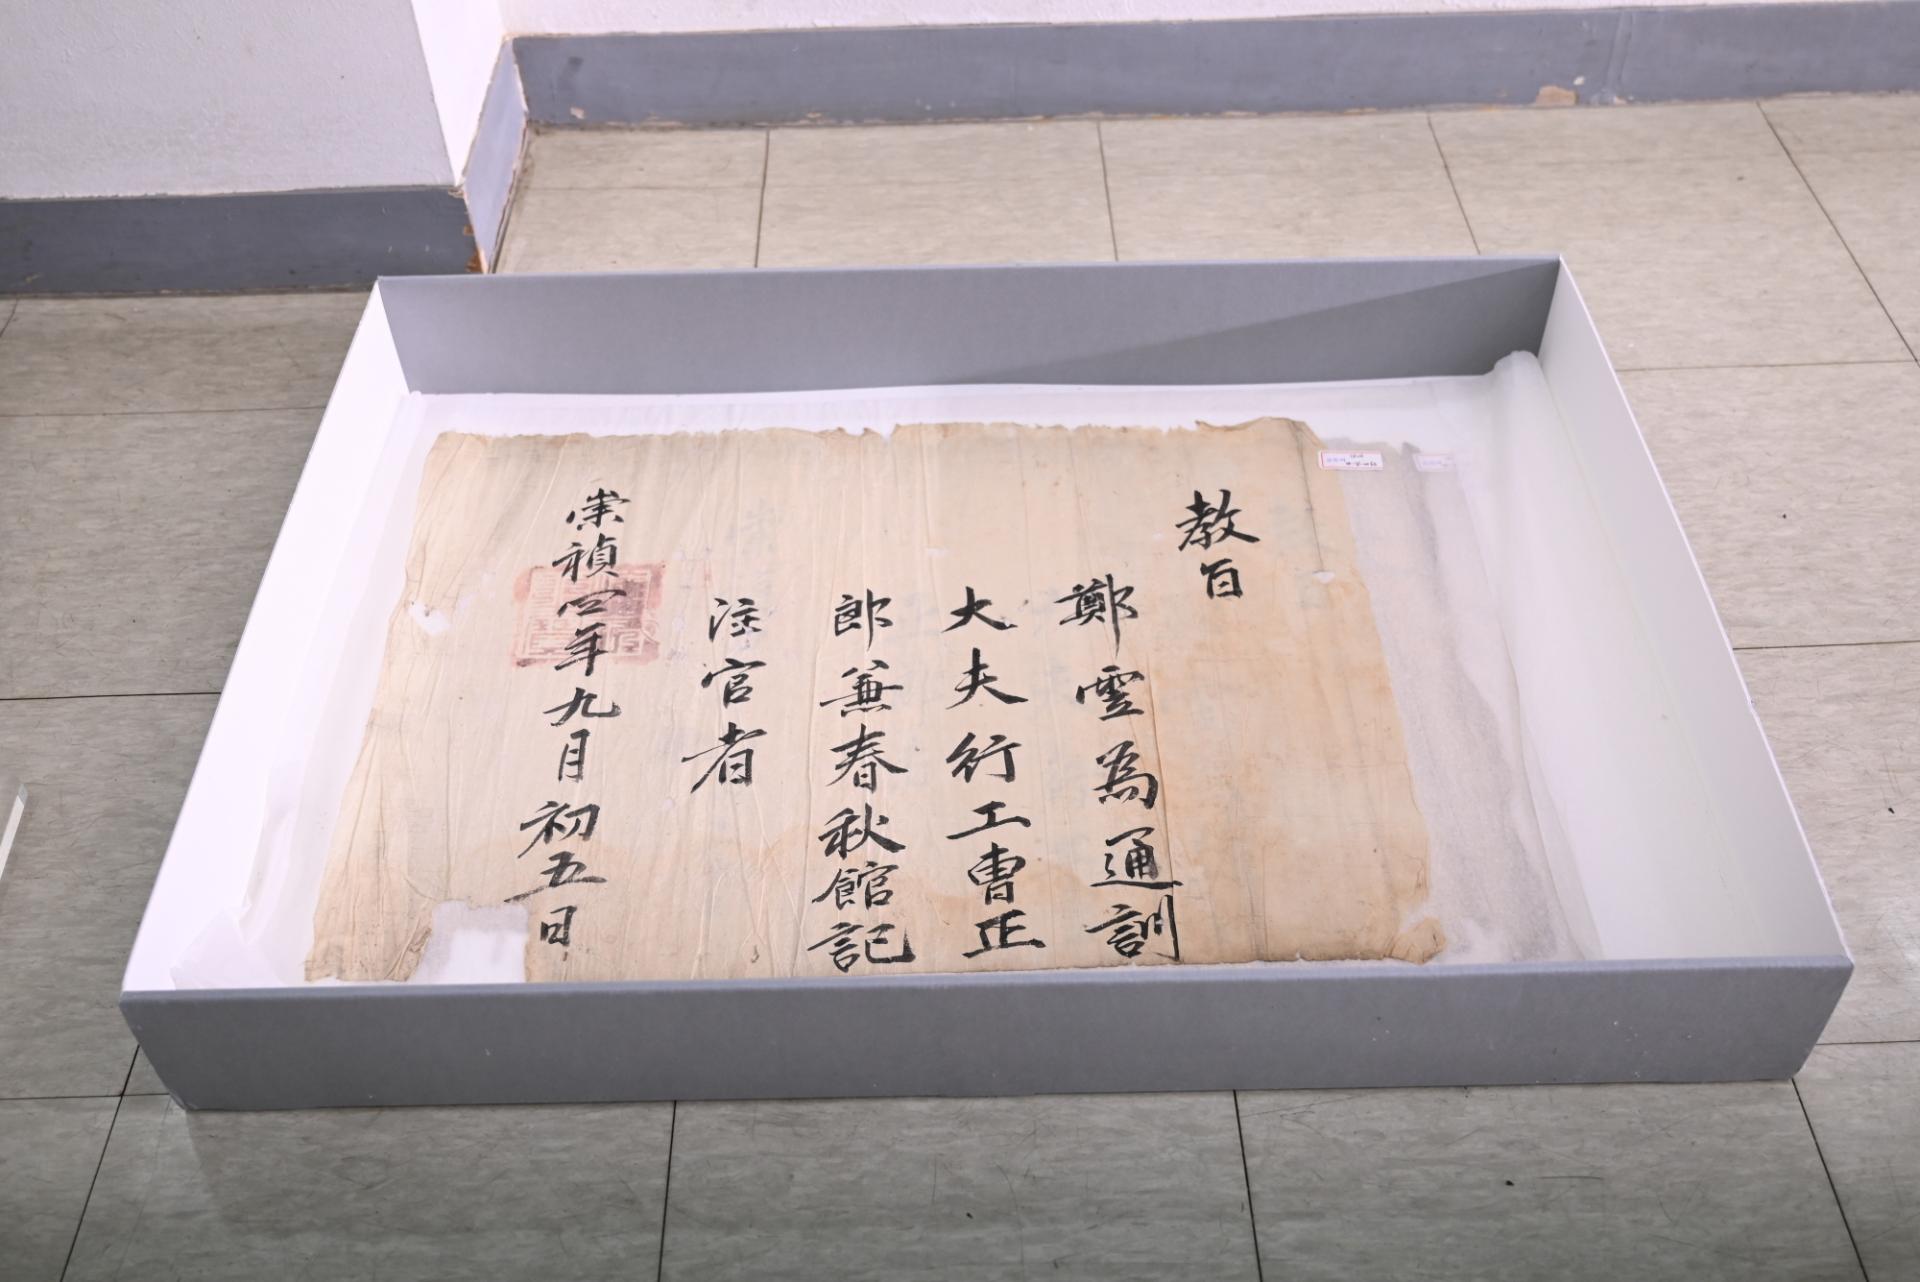 教旨
鄭雲為通訓
大夫行工曹正
郎兼春秋館記
注官者
崇禎四年九月初五日